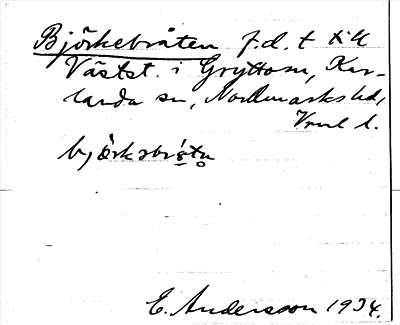 Björkebråten f.d. t till
Västst. i Gryttom, Kar-
landa sn, Nordmarks hd,
Vrml l.
E. Andersson 1934.